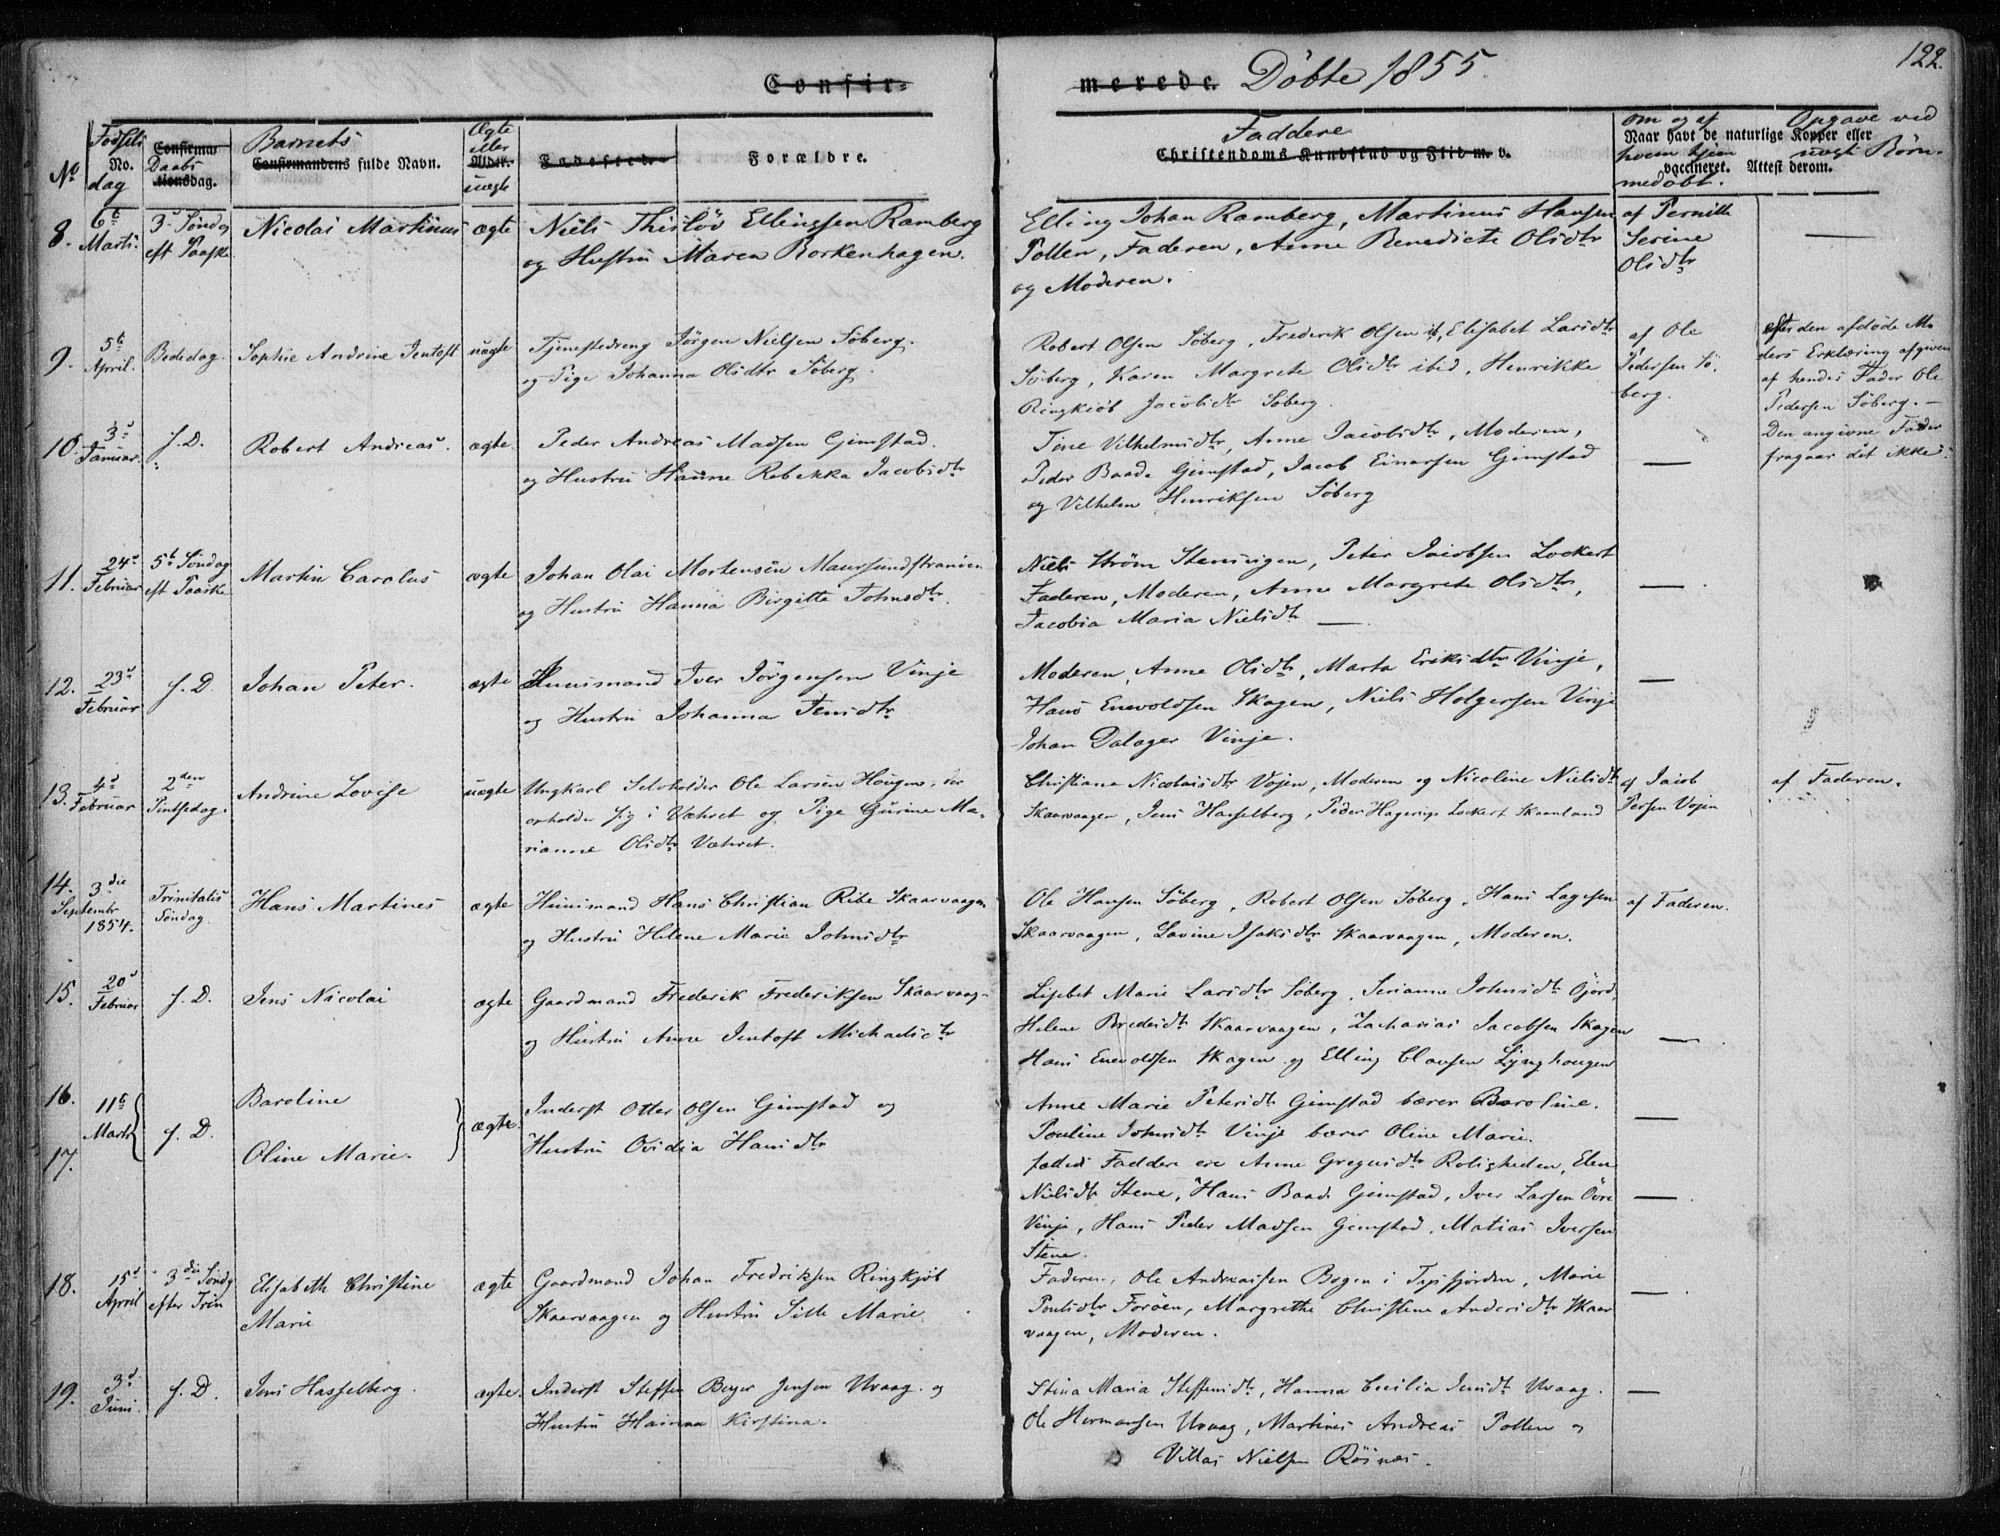 122.
Confir= merede. Döbte 1855.
No
Födsels
No.
dag
Confirma-
Daabs
tionsdag.
Barnets
Confirmandens fulde Navn.
Ægte
eller
Alder.
uægte
Fødested.
Forældre.
Faddere
Christendoms Kundskab og Flid m. v.
om og af
Naar havt de naturlige Kopper eller
hvem hjem
vaccineret. Attest derom.
medöbt.
Opgave ved
uægte Børn.
8.
6te
Marts.
3d Söndag
eft Paaske
Nicolai Martinus
ægte
Niels Thislöv Ellingsen Ramberg
og Hustru Maren Borkenhagen.
Elling Johan Ramberg, Martinus Hansen
Pollen, Faderen, Anne Benedicte Olsdtr
og Moderen.
af Pernille
Serine
Olsdtr
9.
5te
April.
Bededag.
Sophie Andrine Jentoft
uægte
Tjenestedreng Jörgen Nielsen Söberg.
og Pige Johanna Olsdtr Söberg.
Robert Olsen Söberg, Frederik Olsen ib, Elisabet Larsdtr
Söberg, Karen Margrete Olsdtr ibid, Henrikke
Ringkiöb Jacobsdtr Söberg.
af Ole
Pedersen Sö-
berg.
efter den afdöde Mo
ders Erklæring afgiven
af hendes Fader Ole
Pedersen Söberg. —
Den angivne Fader
fragaar det ikke.
10.
3d
Januar.
s. D.
Robert Andreas.
ægte
Peder Andreas Madsen Gimstad.
og Hustru Hanne Rebekka Jacobsdtr
Tine Vilhelmsdtr, Anne Jacobsdtr, Moderen,
Peder Baade Gimstad, Jacob Einarsen Gimstad
og Vilhelm Henriksen Söberg
—
11.
24d
Februar
5te Söndag
eft Paaske
Martin Carolus
ægte
Johan Olai Mortensen Maursundstranden
og Hustru Hanna Birgitte Johnsdtr.
Niels Ström Stensvigen, Peter Jacobsen Lockert
Faderen, Moderen, Anne Margrete Olsdtr,
Jacobia Maria Nielsdtr —
—
12.
23d
Februar
s. D.
Johan Peter.
ægte
Huusmand Iver Jörgensen Vinje
og Hustru Johanna Jensdtr
Moderen, Anne Olsdtr, Marta Eriksdtr Vinje,
Hans Enevoldsen Skagen, Niels Holgersen Vinje
Johan Dalager Vinje.
—
13.
4d
Februar
2den
Pintsedag.
Andrine Lovise
uægte
Ungkarl Selvholder Ole Larsen Hougen, der
opholder sig i Væhret og Pige Gurine Ma-
rianne Olsdtr Væhret.
Christiane Nicolaisdtr Vojen, Moderen og Nicoline Nielsdtr
Skaarvaagen, Jens Hasselberg, Peder Hagerup Lockert Skaanland
af Jacob
Persen Vojen
af Faderen.
14.
3die
Septembr
1854.
Trinitatis
Söndag.
Hans Martines
ægte
Huusmand Hans Christian Ribe Skaarvaagen
og Hustru Helene Marie Johnsdtr
Ole Hansen Söberg, Robert Olsen Söberg, Hans Lagesen
Skaarvaagen, Lavine Isaksdtr Skaarvaagen, Moderen.
af Faderen.
15.
20d
Februar
s. D.
Jens Nicolai
ægte
Gaardmand Frederik Frederiksen Skaarvaag-
og Hustru Anne Jentoft Michaelsdtr
Lisebet Marie Larsdtr Söberg, Serianne Johnsdtr Öjord,
Helene Bredesdtr Skaarvaagen, Zacharias Jacobsen Skagen
Hans Enevoldsen Skagen og Elling Clausen Lynghougen
—
16.
17.
11te
Marts
s. D.
Baroline
Oline Marie.
ægte.
Inderst Otter Olsen Gimstad og
Hustru Ovidia Hansdtr
Anne Marie Petersdtr Gimstad bærer Baroline.
Pouline Johnsdtr Vinje bærer Oline Marie.
fælleds Faddere ere Anne Gregusdtr Roligheden, Elen
Nielsdtr Stene, Hans Baade Gimstad, Iver Larsen Övre
Vinje, Hans Peder Madsen Gimstad, Matias Iversen
Stene.
—
—
18.
15d
April
3die Söndg
efter Trin
Elisabeth Christine
Marie
ægte
Gaardmand Johan Fredriksen Ringkjöb
Skaarvaagen og Hustru Sille Marie
Faderen, Ole Andreassen Bogen i Tysfjorden, Marie
Poulsdtr Foröen, Margrethe Christine Andersdtr Skaar
vaagen, Moderen.
—
19.
3d
Juni.
s. D.
Jens Hasselberg.
ægte.
Inderst Steffen Beyer Jensen Uvaag og
Hustru Hanna Kirstina.
Stina Maria Steffensdtr, Hanna Cecilia Jensdtr Uvaag.
Ole Hermansen Uvaag, Martines Andreas Pollen og
Villas Nielsen Rösnæs.
—